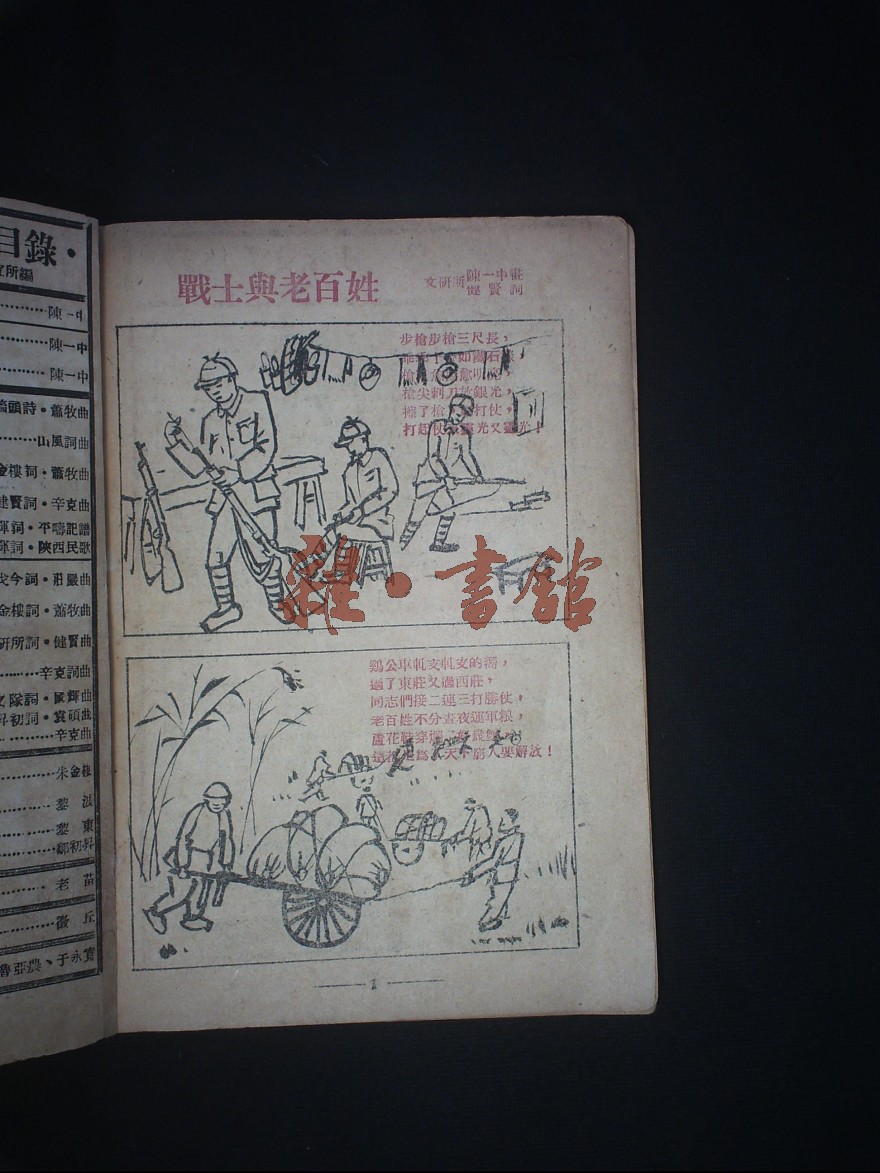 目錄·
所編
陳一中
陳一中
陳一中
牆頭詩·蕭牧曲
山風詞曲
金樓詞·蕭牧曲
健賢詞·辛克曲
詞·平疇記譜
詞·陝西民歌
戈今詞·莊嚴曲
金樓詞·蕭牧曲
研所詞·健賢曲
辛克詞曲
隊詞·鼠輝曲
昇初詞·袁碩曲
辛克曲
朱金樓
黎波
黎東
鄒初昇
老苗
微丘
魯亞農、于永寬
戰士與老百姓
文研所 陳一中
健賢詞
步槍步槍三尺長,
槍尖刺刀放銀光,
擦了槍 打仗,
打起仗 靈光又靈光!
雞公車軋支軋支的響,
過了東莊又過西莊,
同志們接二連三打勝仗,
老百姓不分晝夜運軍糧,
蘆花鞋穿爛
這 爲 天下窮人要解放!
1
雜·書舘